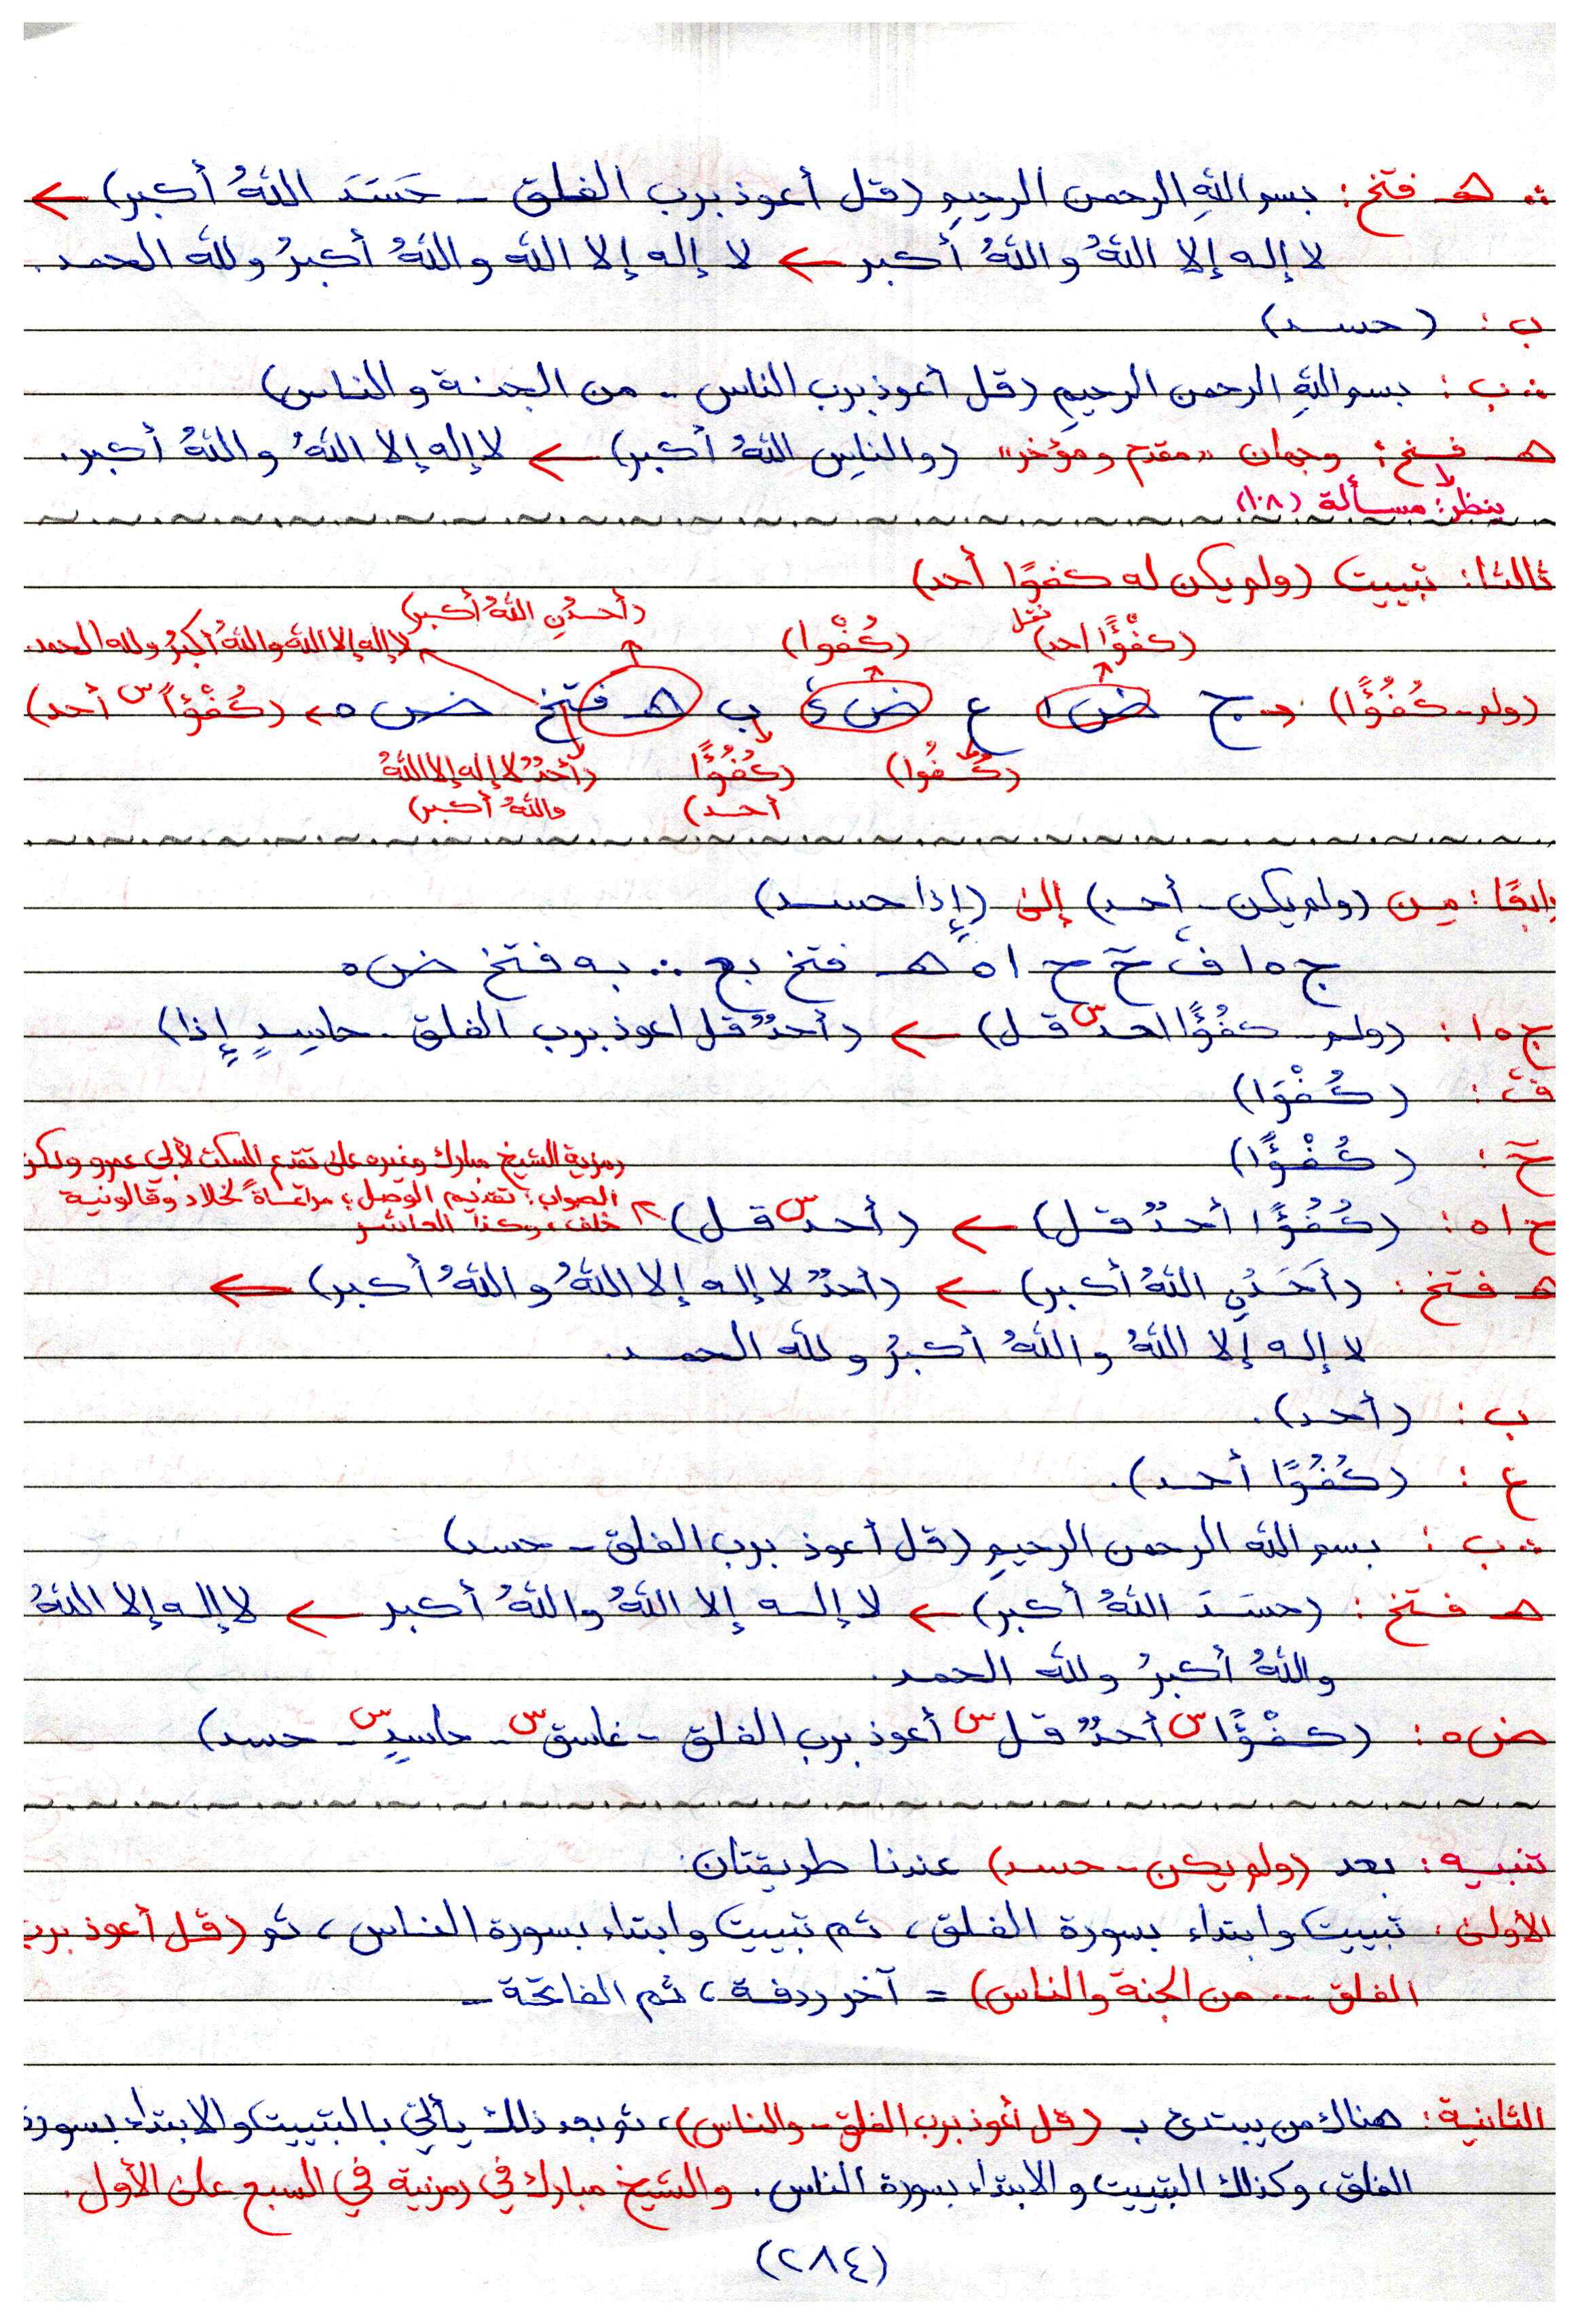 ∴ هـ فتخ : بسم اللهِ الرحمن الرحيمِ (قل أعوذ برب الفلق - حَسَدَ اللهُ أكبر) ←
لا إله إلا اللهُ واللهُ أكبر ← لا إله إلا الله واللهُ أكبرُ ولله الحمد.
ب : (حسد)
∴ ب : بسم اللهِ الرحمن الرحيمِ (قل أعوذ برب الناس - من الجنة والناس)
هـ فتخ : وجهان "مقدم ومؤخر" (والناسِ اللهُ أكبر) ← لا إله إلا اللهُ واللهُ أكبر.
ينظر: مسألة (١٠٨)
ثالثا: تبييت (ولم يكن له كفوًا أحد)
(أحدُنِ اللهُ أكبر)
(كفْؤًا احد) نقل (كُفْوا) لا إله إلا الله واللهُ أكبرُ ولله الحمد.
(ولم - كُفُؤًا) ← ج ض ١ ع ض ئ ب هـ فتخ ض ٥ ← (كُفْؤًا س أحد)
(كُفُوا) (كُفُؤًا أحد) (أحدٌ لا إله إلا اللهُ
واللهُ أكبر)
رابعًا: من (ولم يكن - أحد) إلى (إذا حسد)
ج ٥ ا ف ح ح ا ٥ هـ فتخ بع ∴ به فتخ ض ٥
ج ٥ ا : (ولم - كفُؤًا احد س قل) ← (أحدٌ قل اعوذ برب الفلق - حاسِدٍ إذا)
ف : (كُفْوَا)
ح : (كُفْؤًا)
رمزية الشيخ مبارك وغيره على تقدم السكت لأبي عمرو ولكن
الصواب: تقديم الوصل؛ مراعاةً لخلاد وقالونية
خلف، وكذا العاشر
ح ا ٥ : (كُفُؤًا أحدٌ قل) ← (أحد س قل)
هـ فتخ : (أحَدُنِ اللهُ أكبر) ← (أحدٌ لا إله إلا اللهُ واللهُ أكبر) ←
لا إله إلا اللهُ واللهُ أكبرُ ولله الحمد.
ب : (أحد).
ع : (كُفُوًا أحد).
∴ ب : بسم الله الرحمن الرحيمِ (قل أعوذ برب الفلق - حسد)
هـ فتخ : (حسَدَ اللهُ أكبر) ← لا إله إلا اللهُ واللهُ أكبر ← لا إله إلا اللهُ
واللهُ أكبرُ ولله الحمد.
ض ٥ : (كفْؤًا س أحدٌ قل س أعوذ برب الفلق - غاسق س - حاسدٍ س - حسد)
تنبيه: بعد (ولم يكن - حسد) عندنا طريقتان:
الأولى: تبييت وابتداء بسورة الفلق، ثم تبييت وابتداء بسورة الناس، ثم (قل أعوذ برب
الفلق ... من الجنة والناس) = آخر ردفة، ثم الفاتحة -
الثانية: هناك من يبتدئ بـ (قل أعوذ برب الفلق - والناس)، ثم بعد ذلك يأتي بالتبييت والابتداء بسورة
الفلق، وكذلك التبييت والابتداء بسورة الناس. والشيخ مبارك في رمزية في السبع على الأول.
(٢٨٤)